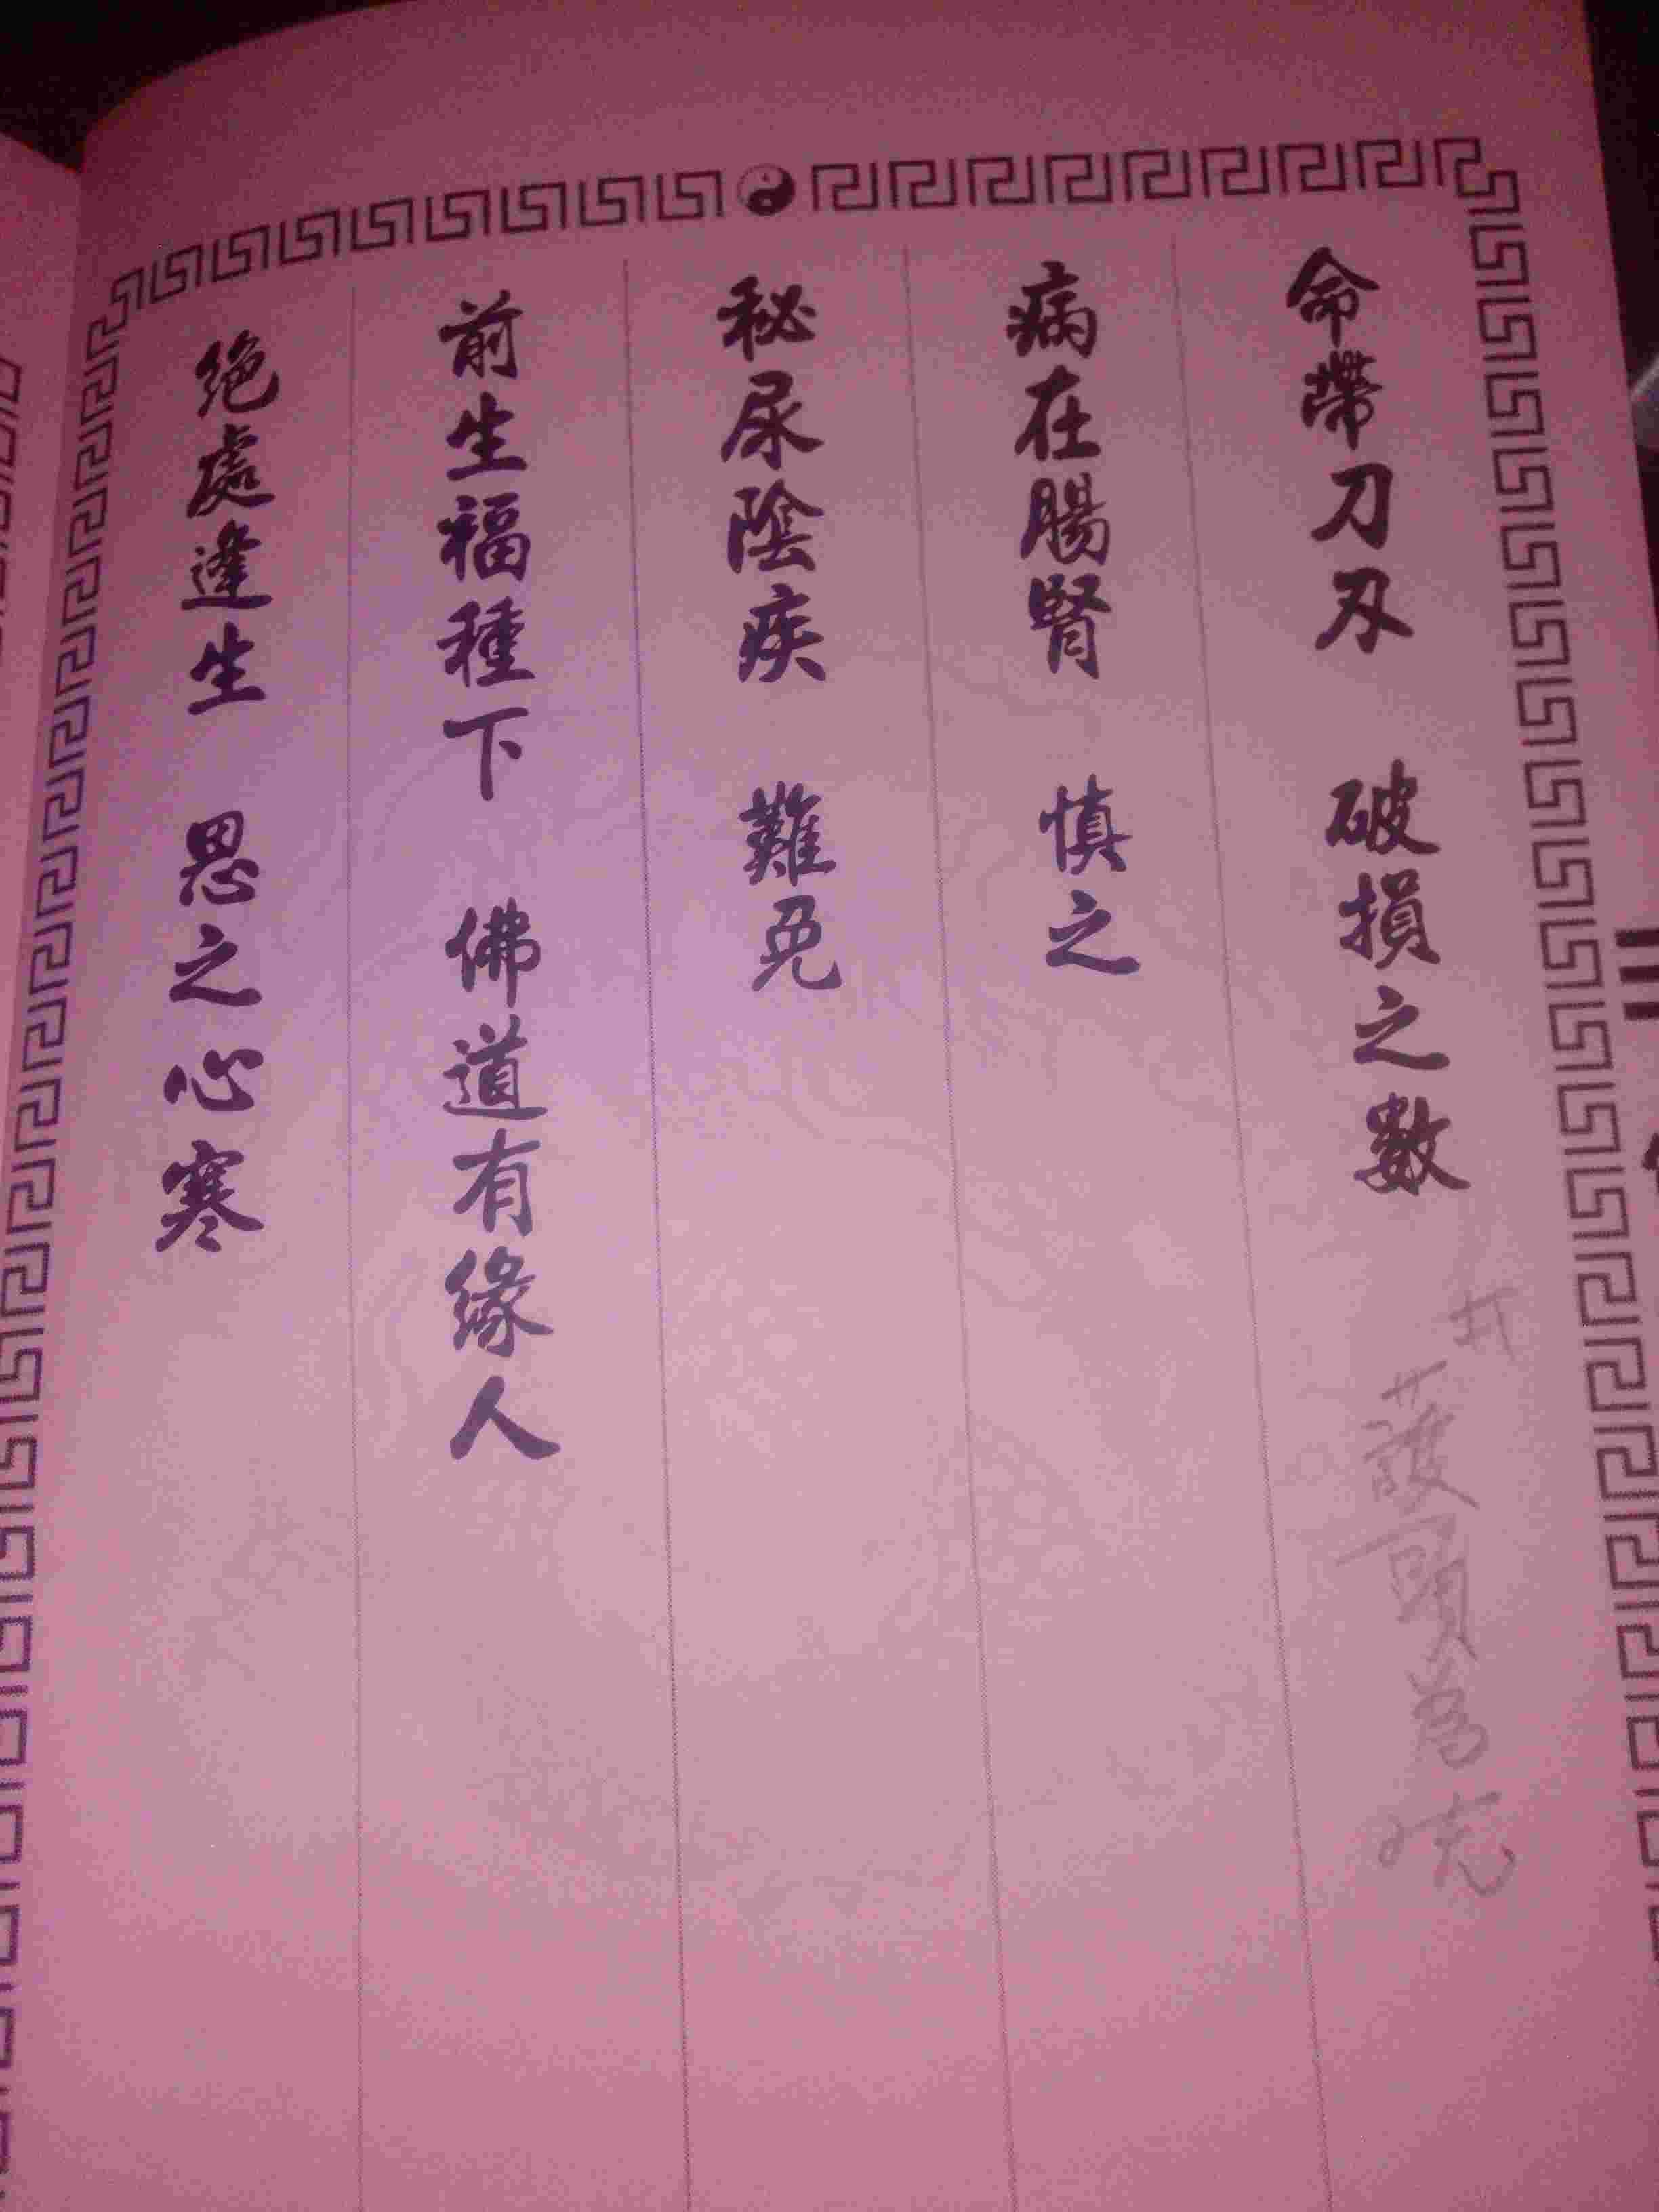 命帶刀刃 破損之數
病在腸腎 慎之
秘尿陰疾 難免
前生福種下 佛道有緣人
絕處逢生 思之心寒